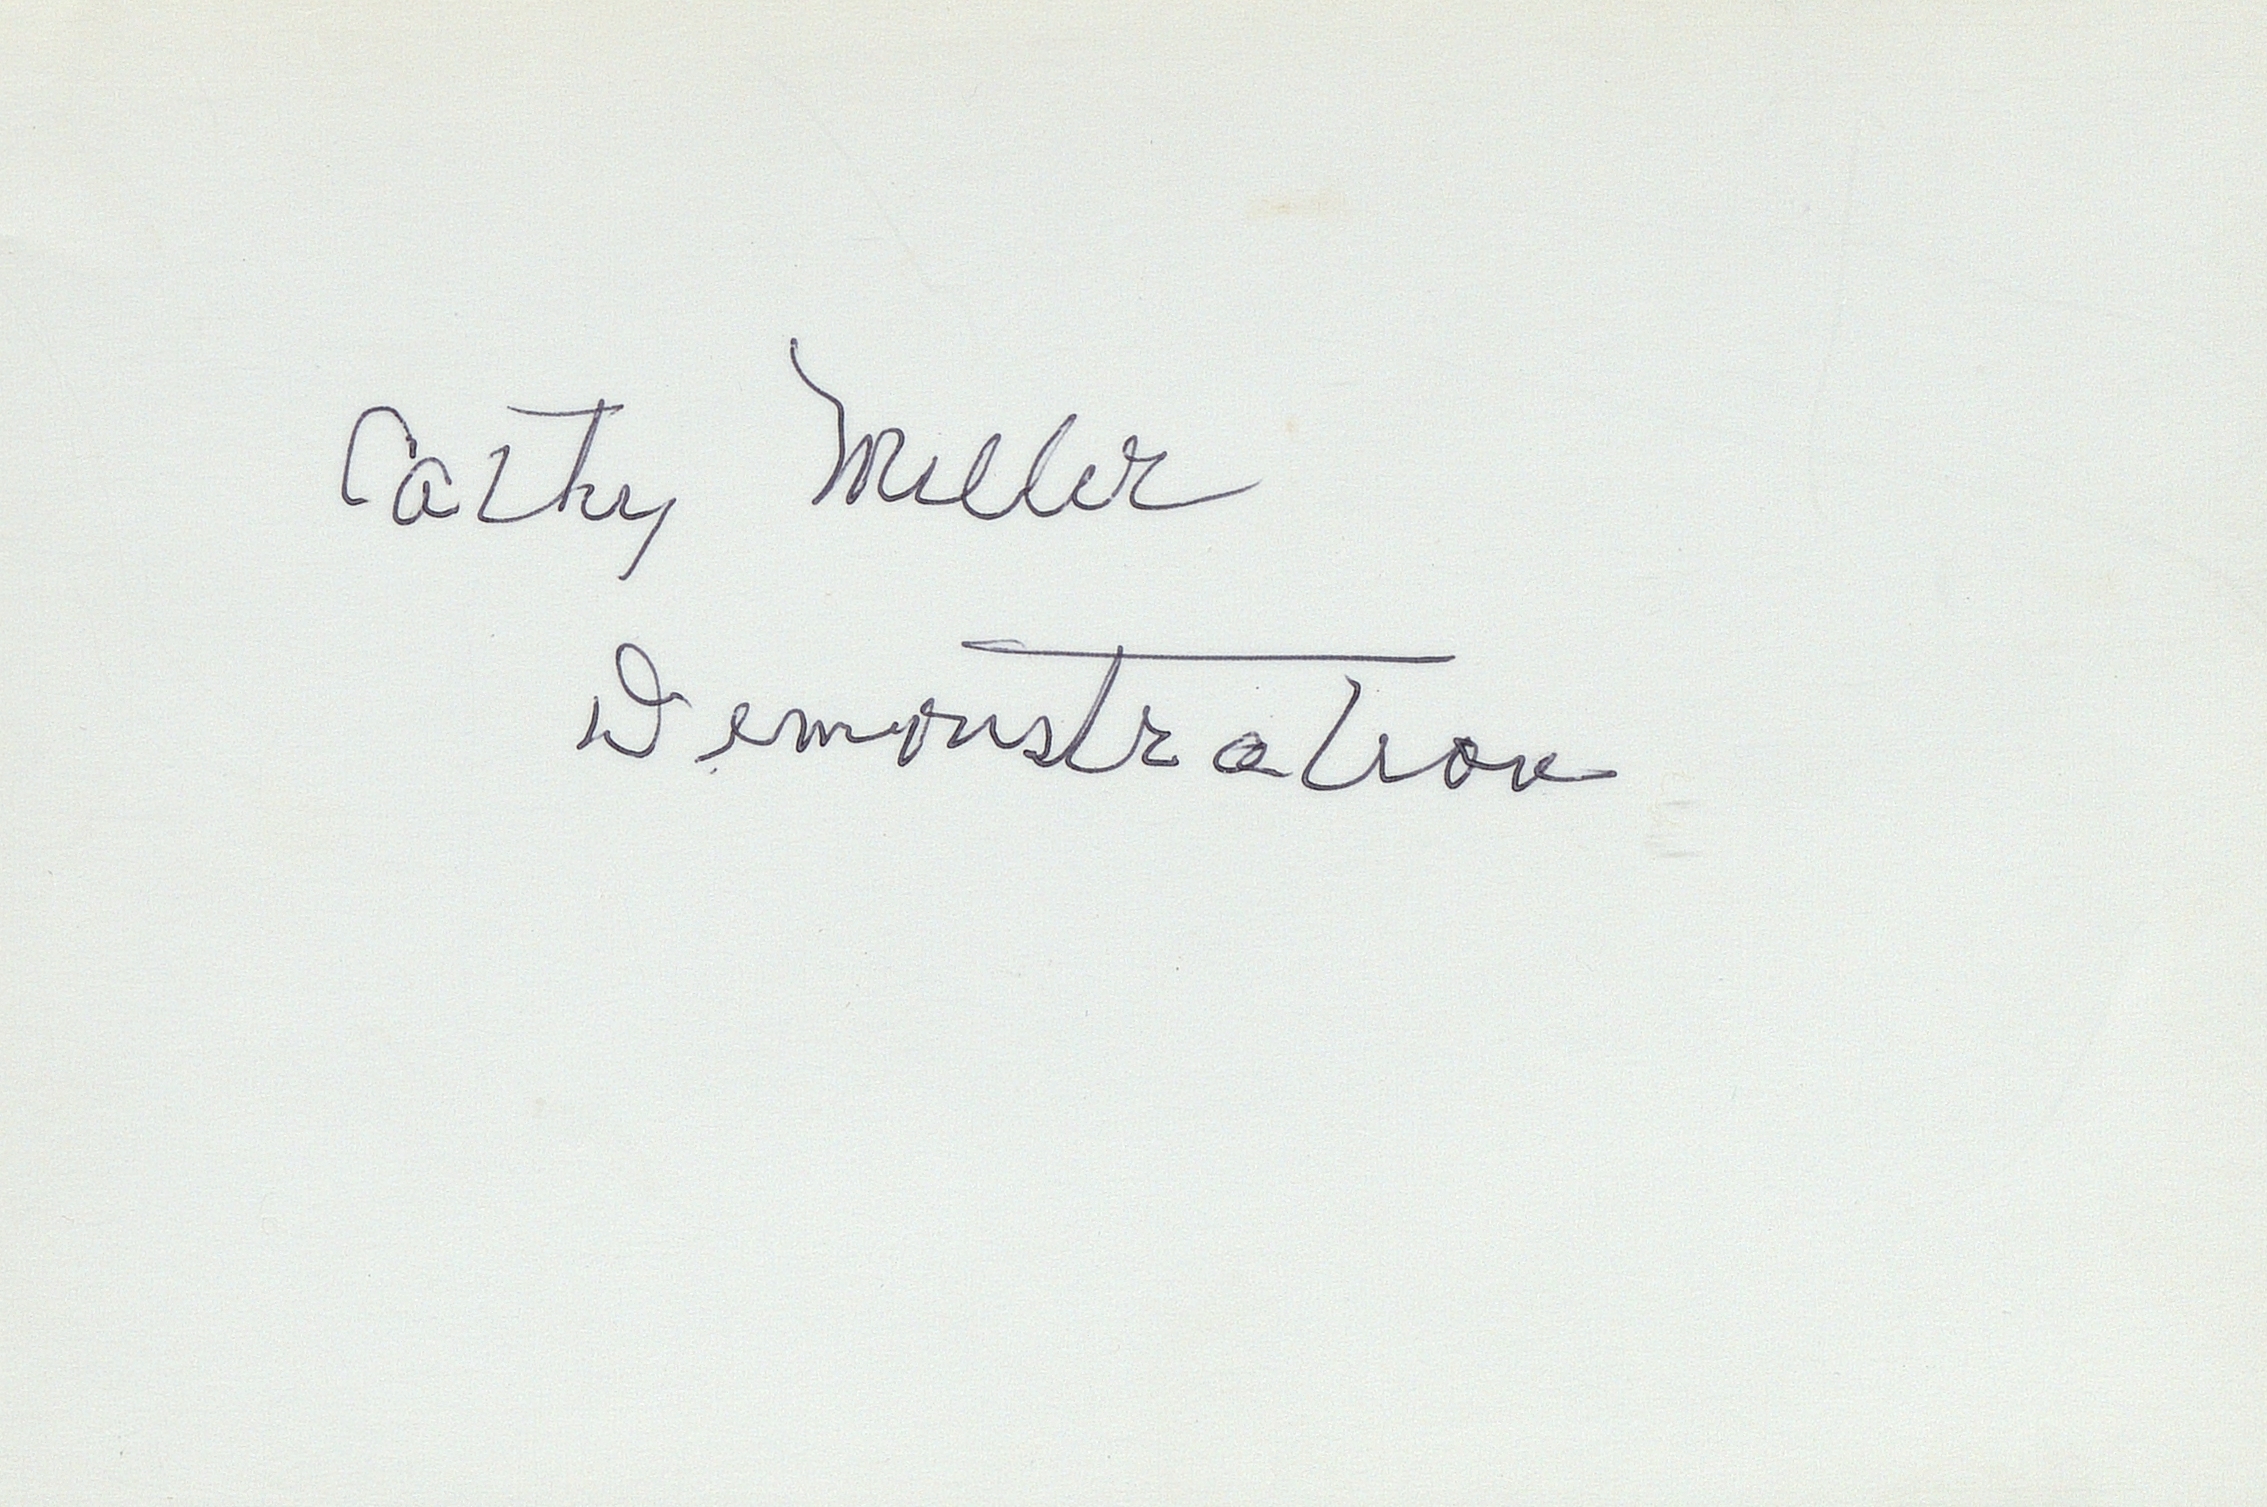 Cathy Miller
Demonstration